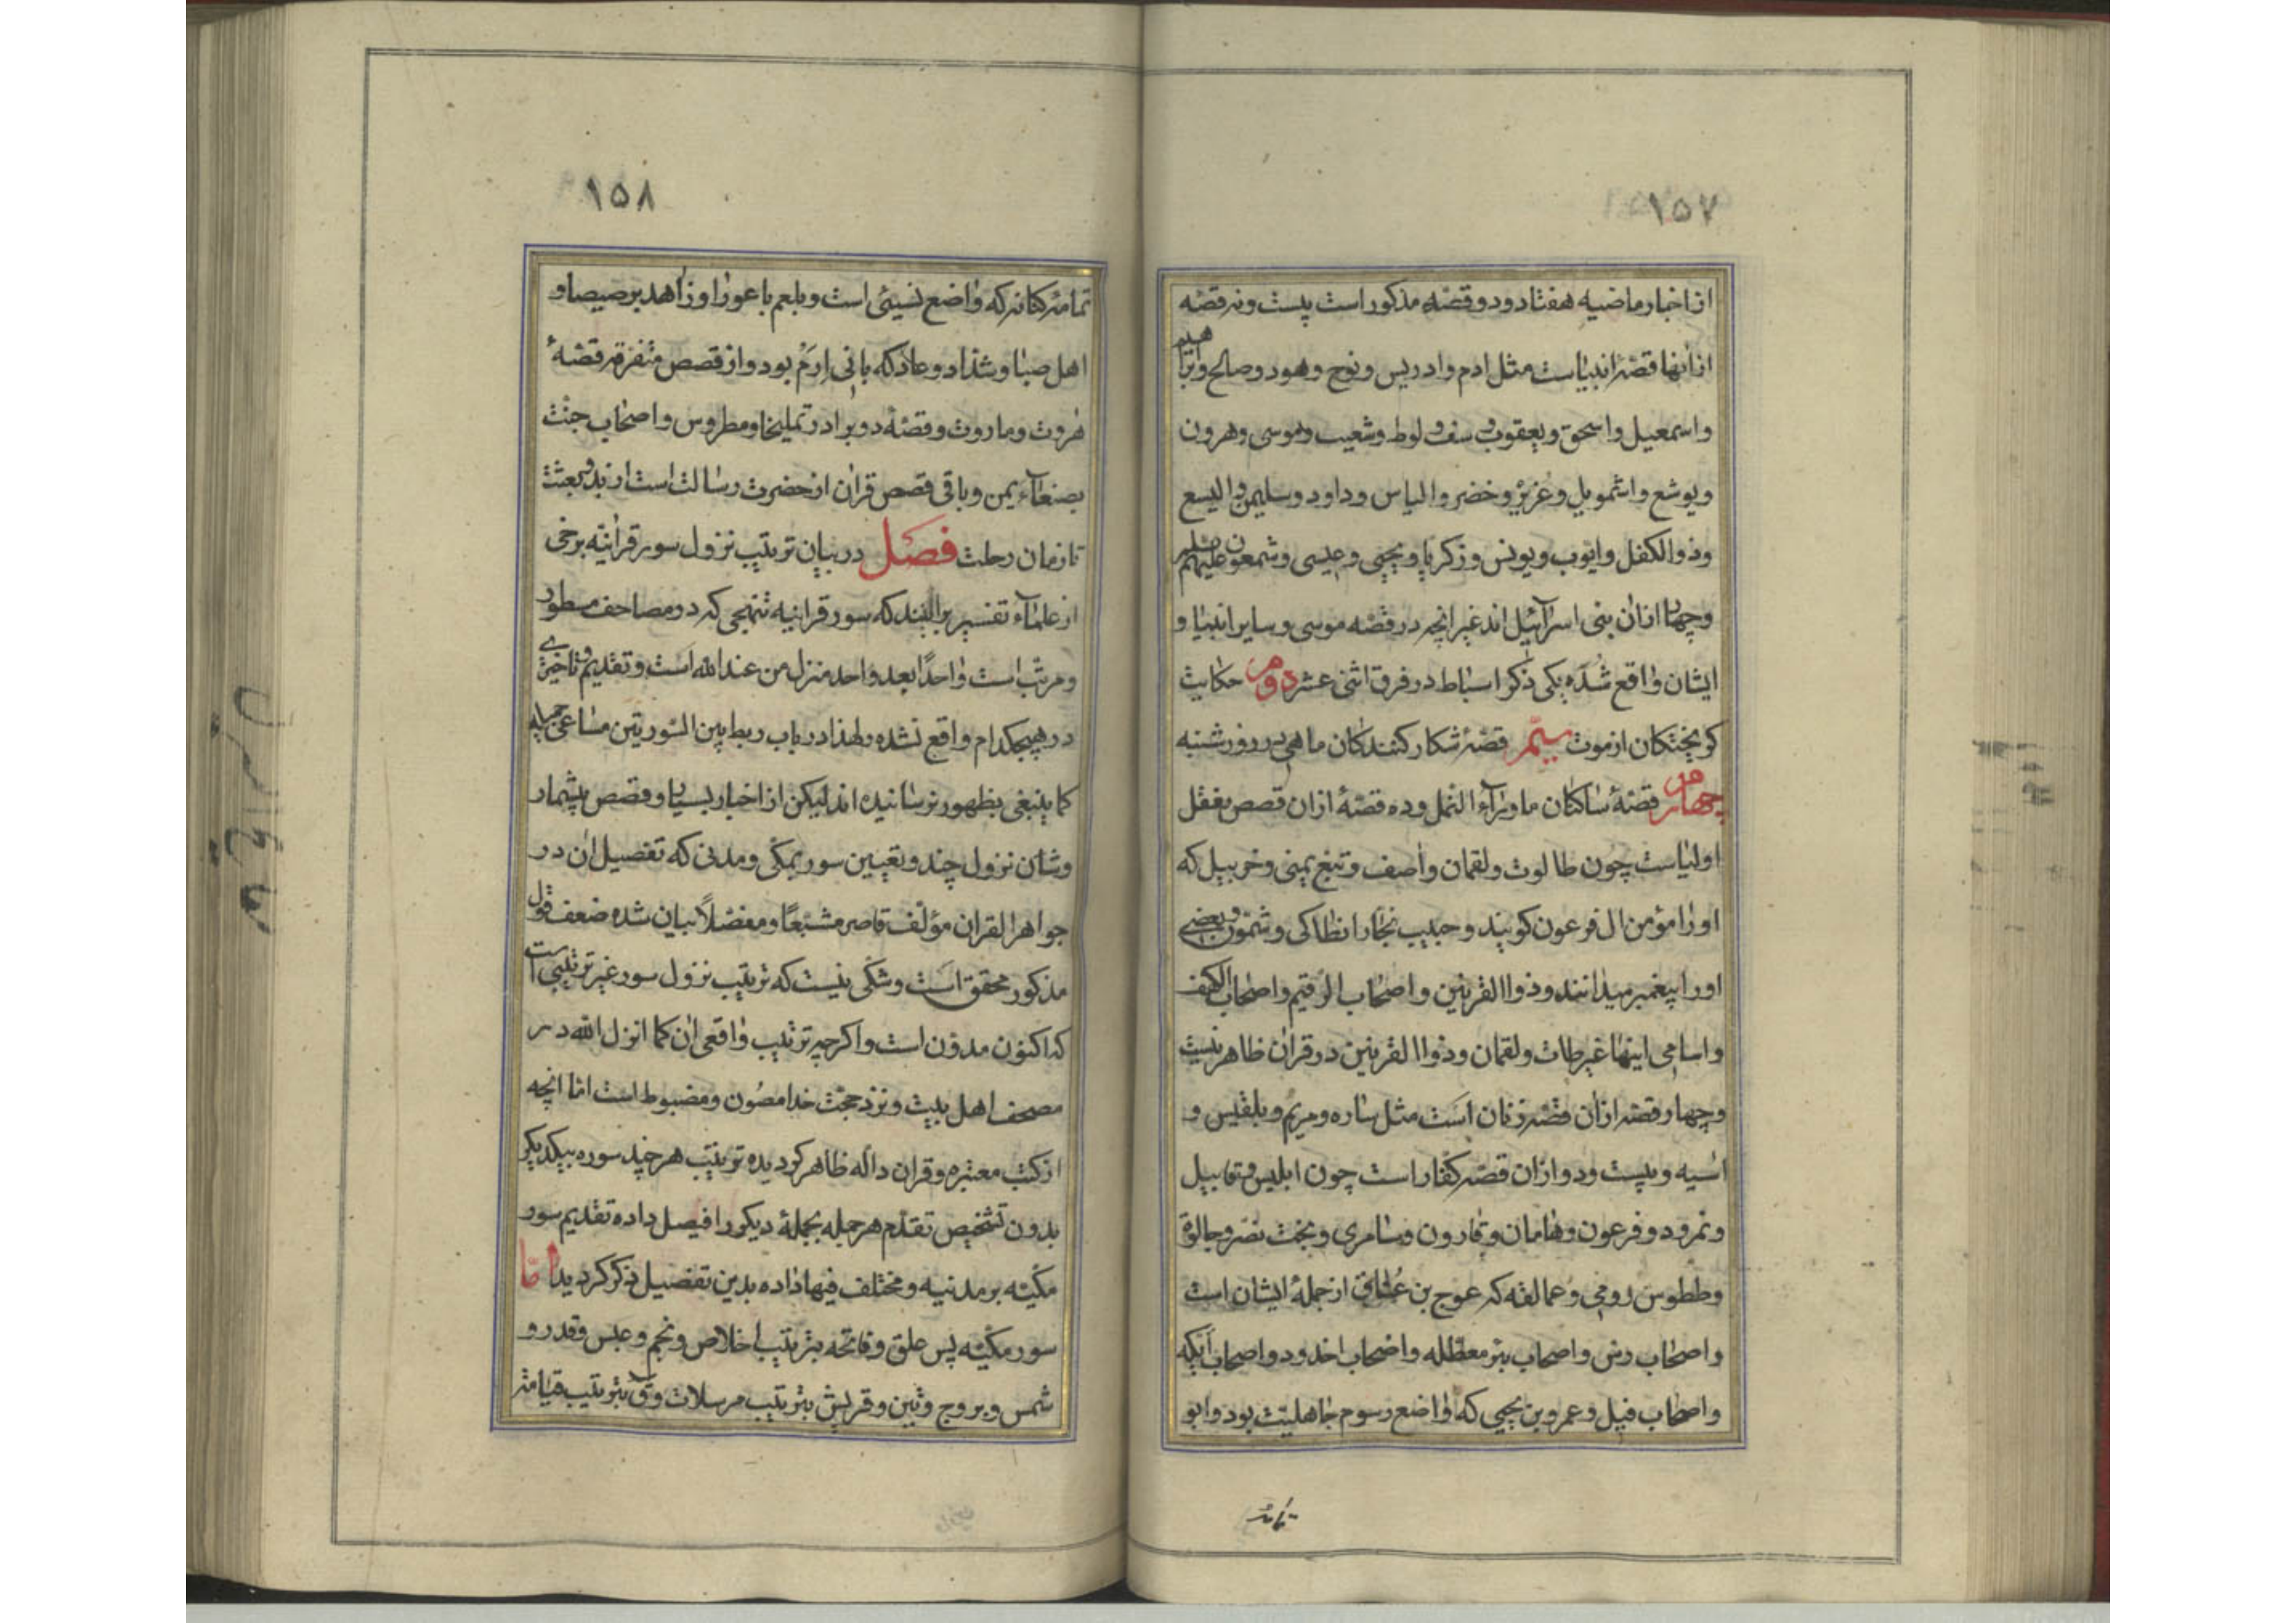 ۱۵۷
از اخبار ماضیه هفتاد و دو قصّه مذکور است بیست و نه قصّه
از آنها قصّهٔ انبیاست مثل ادم و ادریس و نوح و هود و صالح و ابراهیم
و اسمعیل و اسحق و یعقوب و یوسف و لوط و شعیب و موسی و هرون
و یوشع و اشمویل و عُزیرْ و خضر و الیاس و داود و سلیمن و الیسع
و ذوالکفل و ایوب و یونس و زکریا و یحیی و عیسی و شمعون علیهم
و چهار از ان بنی اسرآئیل اند غیر انچه در قصّه موسی و سایر انبیا و
ایشان واقع شُدَه یکی ذکر اسباط در فرق اثنی عشر دوم حکایت
کریختکان از موت سیّم قصّهٔ شکار کنندکان ماهی در روز شنبه
چهارم قصّهٔ ساکنان ماورآء النمل و ده قصّهٔ ازان قصص بعضی
اولیاست چون طالوت و لقمان و آصف و تبّع یمنی و خربیل که
او را مؤمن ال فرعون کویند و حبیب نجّار انطاکی و شمعون و بعضی
اورا پیغمبر میدانند و ذوا القرنین و اصحاب الرّقیم و اصحاب الکهف
و اسامی اینها غیر طالوت و لقمان و ذوا القرنین در قران ظاهر نیست
و چهار قصّه ازان قصّه زنان است مثل ساره و مریم و بلقیس و
اسیه و بیست و دو ازان قصّه کفّار است چون ابلیس و قابیل
و نمرود و فرعون و هامان و قارون و سامری و بخت نصّر و جالوة
و ططوس رومی و عمالقه که عوج بن عُناق از جملهٔ ایشان است
و اصحاب رس و اصحاب بئر معطّله و اصحاب اخدود و اصحاب ایکه
و اصحاب فیل و عمرو بن یحیی که واضع رسوم جاهلیّت بود و ابو
۱۵۸
تمامه کنانه که واضع نسیئی است و بلعم باعورا و زاهد برصیصا و
اهل صبا و شدّاد و عاد که بانی اِرَمْ بود و از قصص متفرّقه قصّهٔ
هٰروت و ماروت و قصّهٔ دو برادر تملیخا و مطروس و اصحاب جنّت
بصنعآء یمن و باقی قصص قران از حضرت رسالت است از بدو بعثت
تا زمان رحلت فصل در بیان ترتیب نزول سور قرانیّه برخی
از علمآء تفسیر برانند که سور قرانیه بنهجی که در مصاحف مسطور
و مرتّب است واحدًا بعد واحد منزل من عند الله است و تقدیم و تاخیری
در هیچکدام واقع نشده و لهذا در باب ربط بین السّورتین مساعی جمیله
کما ینبغی بظهور رسانیده اند لیکن از اخبار بسیار و قصص بیشمار
و شان نزول چند و تعیین سور بمکّی و مدنی که تفصیل ان در
جواهر القران مؤلّف قاصر مشبّعًا و مفصّلاً بیان شده ضعف قول
مذکور محقق است و شکّی نیست که ترتیب نزول سور غیر ترتیبی است
که اکنون مدوّن است و اکرچه ترتیب واقعی ان کما انزل الله در
مصحف اهل بیت و نزد حجّت خدا مصُون و مضبوط است امّا انچه
از کتب معتبره و قران دالّه ظاهر کردیده ترتیب هر چند سوره بیکدیکر
بدون تشخیص تقدّم هر جمله بجملهٔ دیکر را فیصل داده تقدیم سور
مکیّه بر مدنیه و مختلف فیها داده بدین تفصیل ذکر کردید امّا
سور مکیّه پس علق و فاتحه بترتیب اخلاص و نجم و عبس و قدر و
شمس و بروج و تین و قریش بترتیب مرسلات و ق بترتیب قیامة